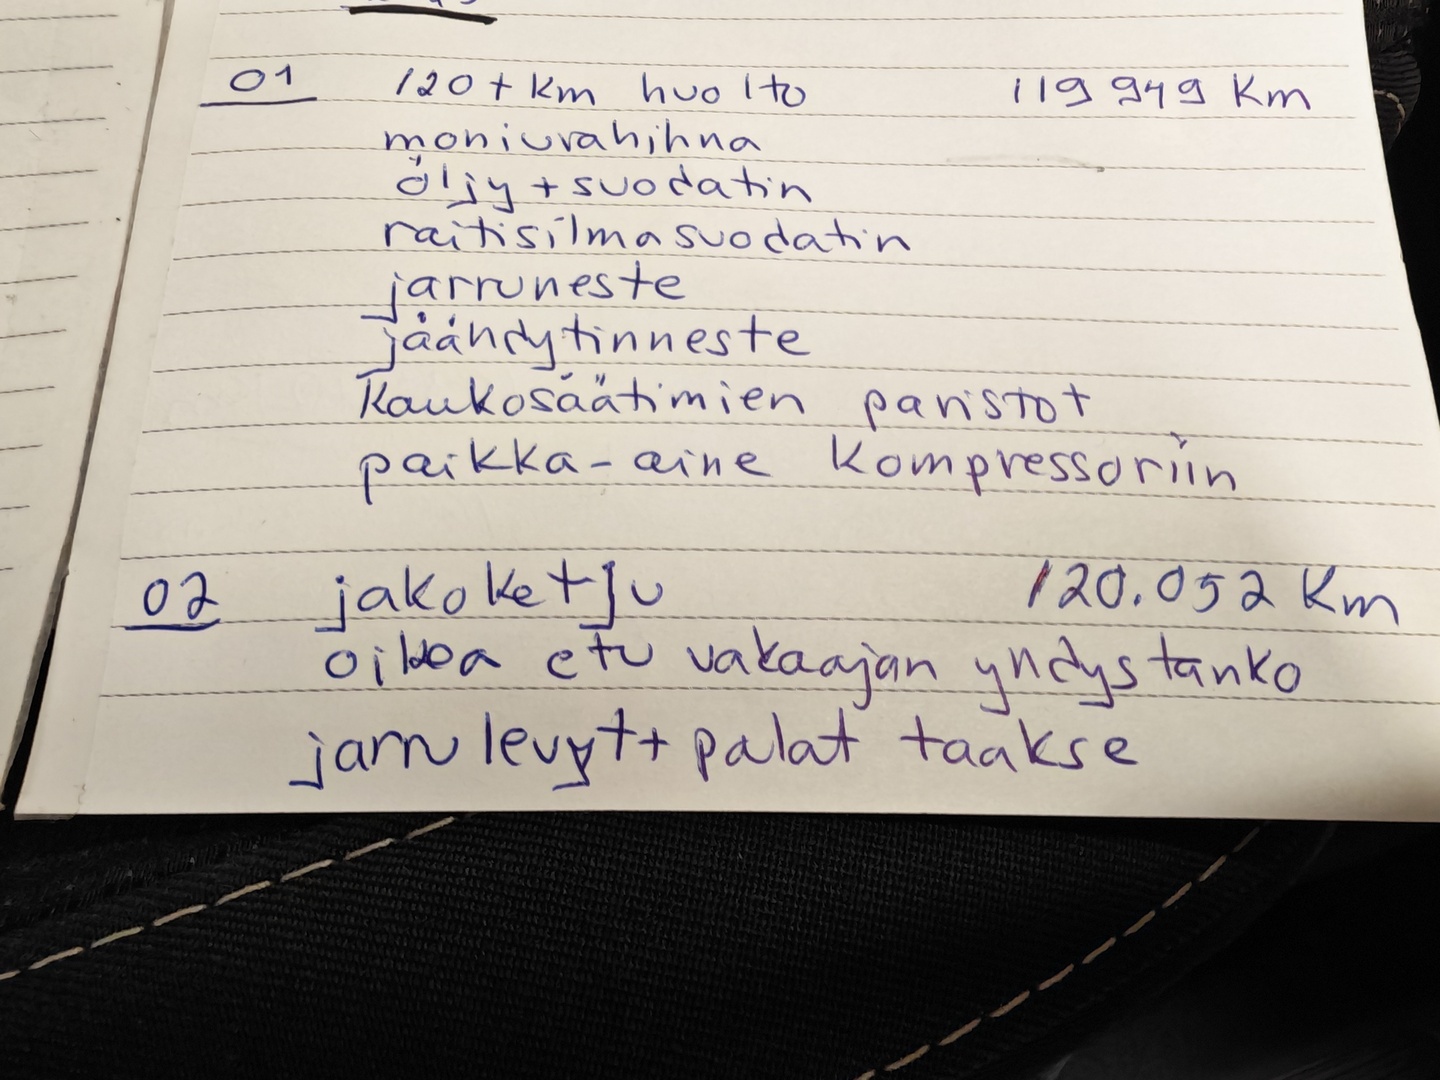 01 120+km huolto 119 949 Km
moniurahihna
öljy + suodatin
raitisilmasuodatin
jarruneste
jäähdytinneste
Kaukosäätimien paristot
paikka-aine Kompressoriin
02 jakoketju 120.052 Km
oikea etu vakaajan yhdystanko
jarrulevyt + palat taakse